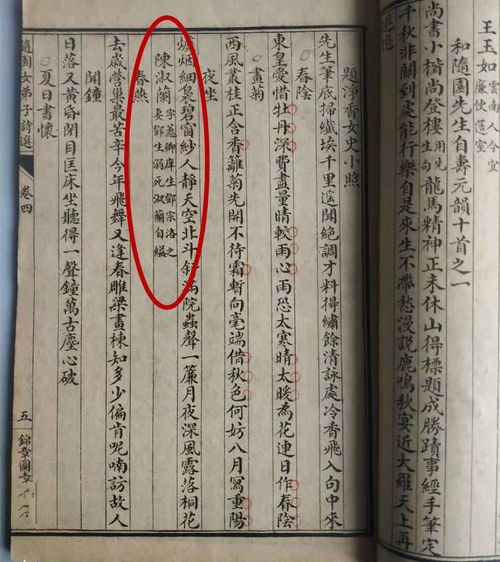 王玉如
和隨園先生自壽元韻十首之一
尚書小楷尚登樓用先生句龍馬精神正未休山得標題成勝蹟事經手筆定
千秋非關到處能行樂自是來生不帶愁漫說鹿鳴秋宴近大羅天上再
題淨香女史小照
先生筆底掃纖埃千里遙聞絕調才料得繡餘清詠處冷香飛入句中來
春陰
東皇愛惜牡丹深費盡量晴較雨心雨恐太寒晴太暖為花連日作春陰
畫菊
西風叢桂正合香籬菊先開不待霜暫向毫端借秋色何妨八月寫重陽
夜坐
爐烟細裊碧窗紗人靜天空北斗斜滿院蟲聲一簾月夜深風露落桐花
陳淑蘭 字蕙卿庠生鄧宗洛之
妻鄧生溺死淑蘭自縊
春燕
去歲營巢最苦辛今年飛舞又逢春雕梁畫棟知多少偏肯呢喃訪故人
聞鐘
日落又黃昏閉目匡床坐聽得一聲鐘萬古塵心破
夏日書懷
隨園女弟子詩選 卷四 五 錦章圖書